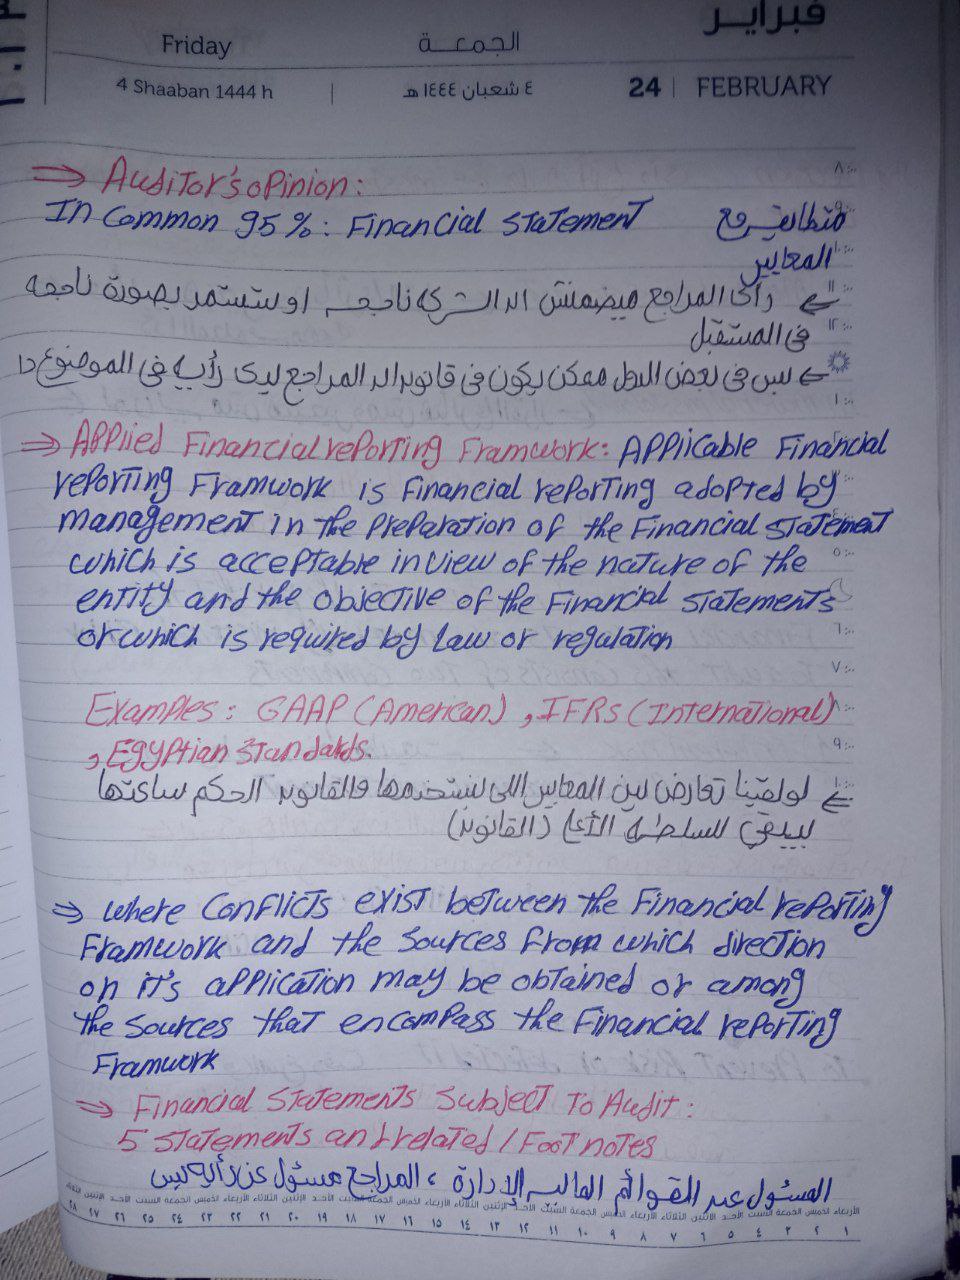 فبراير
Friday الجمعة
4 Shaaban 1444 h | ٤ شعبان ١٤٤٤ هـ 24 | FEBRUARY
⇒ Auditor's opinion:
In Common 95%: Financial Statement متطابقة مع
المعايير
⇐ رأى المراجع ميضمنش ان الشركه ناجحه او ستستمر بصورة ناجحه
فى المستقبل
⇐ بس فى بعض الدول ممكن يكون فى قانون ان المراجع ليدى رأيه فى الموضوع دا
⇒ Applied Financial reporting Framwork: Applicable Financial
reporting Framwork is Financial reporting adopted by
management in the preparation of the Financial Statement
which is acceptable in view of the nature of the
entity and the objective of the Financial Statements
or which is required by Law or regulation
Examples: GAAP (American), IFRs (International)
, Egyptian Standards.
⇐ لو لقينا تعارض بين المعايير اللى بنستخدمها والقانون الحكم ساعتها
بيبقى للسلطه الأعلى (القانون)
⇒ where Conflicts exist between the Financial reporting
Framwork and the Sources From which direction
on it's application may be obtained or among
the Sources that encompass the Financial reporting
Framwork
⇒ Financial Statements Subject To Audit:
5 Statements and related / Foot notes
المسئول عن القوائم الماليه الإدارة ، المراجع مسئول عن رأيه بس
الأربعاء الخميس الجمعة السبت الأحد الإثنين الثلاثاء الأربعاء الخميس الجمعة السبت الأحد الإثنين الثلاثاء الأربعاء الخميس الجمعة السبت الأحد الإثنين الثلاثاء الأربعاء الخميس الجمعة السبت الأحد الإثنين الثلاثاء
١ ٢ ٣ ٤ ٥ ٦ ٧ ٨ ٩ ١٠ ١١ ١٢ ١٣ ١٤ ١٥ ١٦ ١٧ ١٨ ١٩ ٢٠ ٢١ ٢٢ ٢٣ ٢٤ ٢٥ ٢٦ ٢٧ ٢٨